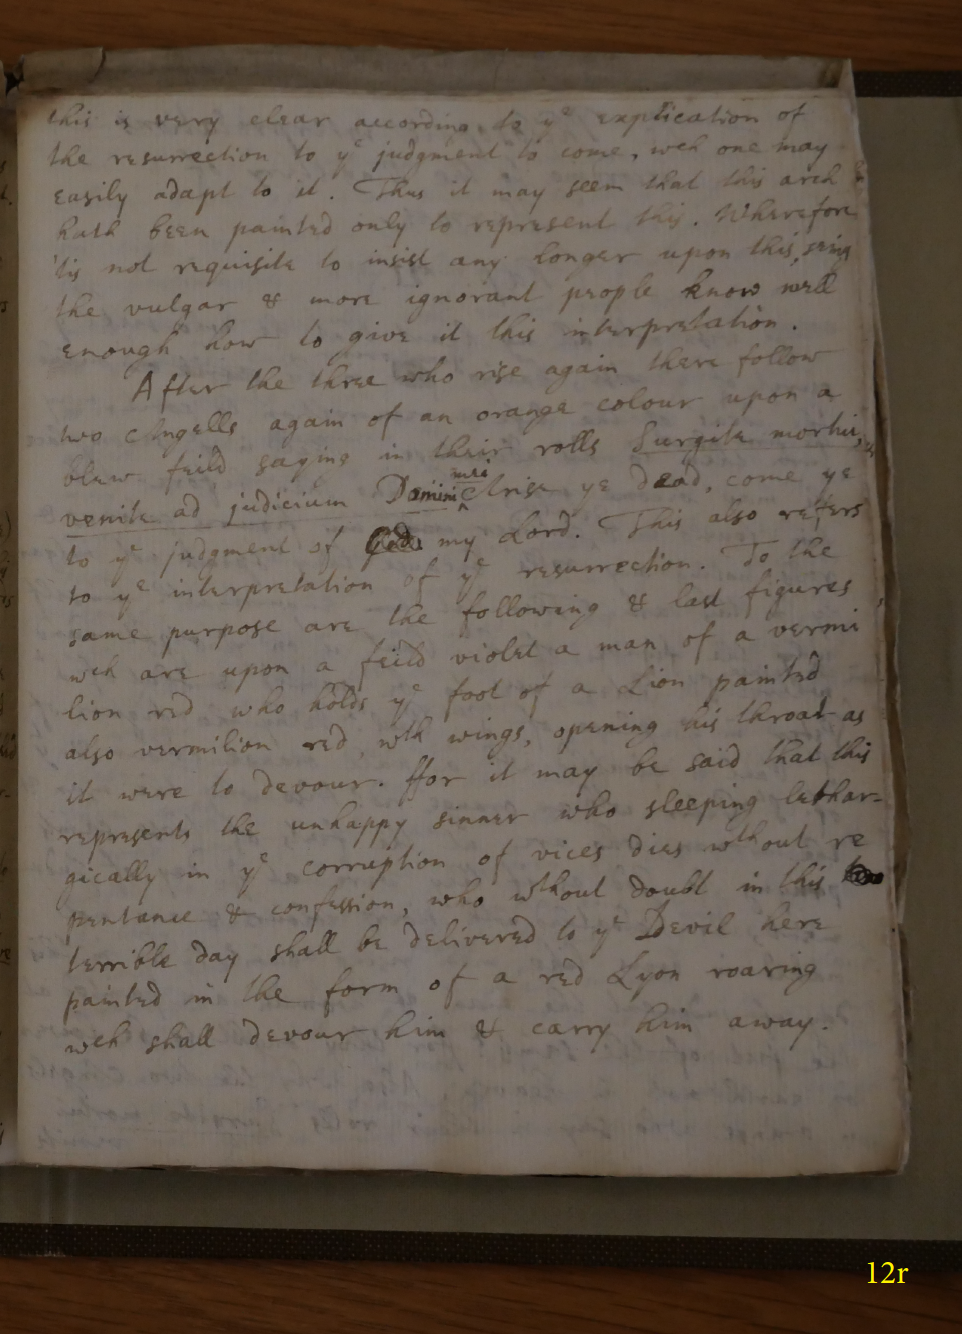 this is very clear according to yᵉ explication of
the resurrection to yᵉ judgment to come, wch one may
easily adapt to it. Thus it may seem that this arch
hath been painted only to represent this. Wherefore
'tis not requisite to insist any longer upon this, seing
the vulgar & more ignorant people know well
enough how to give it this interpretation.
After the three who rise again there follow
two Angells again of an orange colour upon a
blew feild saying in their rolls Surgite mortui,
venite ad judicium Domini mei Arise ye dead, come ye
to yᵉ judgment of my Lord. This also refers
to yᵉ interpretation of yᵉ resurrection. To the
same purpose are the following & last figures
wch are upon a feild violet a man of a vermi
lion red who holds yᵉ foot of a Lion painted
also vermilion red wth wings, opening his throat as
it were to devour. ffor it may be said that this
represents the unhappy sinner who sleeping lethar-
gically in yᵉ corruption of vices dies wthout re
pentance & confession, who wthout doubt in this
terrible day shall be delivered to yᵉ Devil here
painted in the form of a red Lyon roaring
wch shall devour him & carry him away.
12r